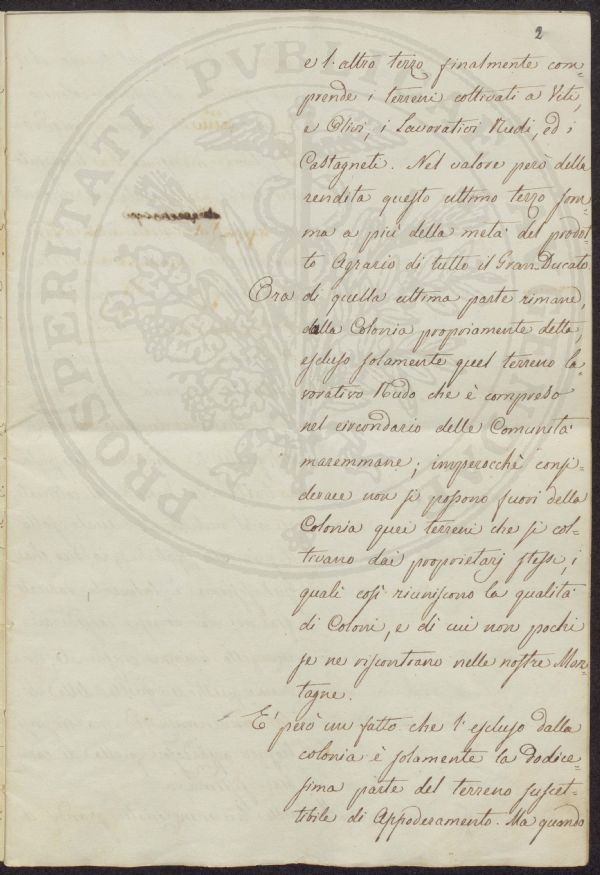 2
e l'altro terzo finalmente com=
prende i terreni coltivati a Viti,
e Olivi, i Lavorativi Nudi, ed i
Castagneti. Nel valore però della
rendita questo ultimo terzo for=
ma a più della metà del prodot=
to Agrario di tutto il Gran-Ducato
Ora di quella ultima parte rimane,
dalla Colonia propriamente detta,
escluso solamente quel terreno la=
vorativo Nudo che è compreso
nel circondario delle Comunità
maremmane; imperocchè consi=
derare non si possono fuori della
Colonia quei terreni che si col=
tivano dai proprietarj stessi, i
quali così riuniscono la qualità
di Coloni, e di cui non pochi
se ne riscontrano nelle nostre Mon=
tagne.
E' però un fatto che l'escluso dalla
colonia è solamente la Dodice=
sima parte del terreno suscet=
tibile di Appoderamento. Ma quando
PROSPERITATI PVBLICAE